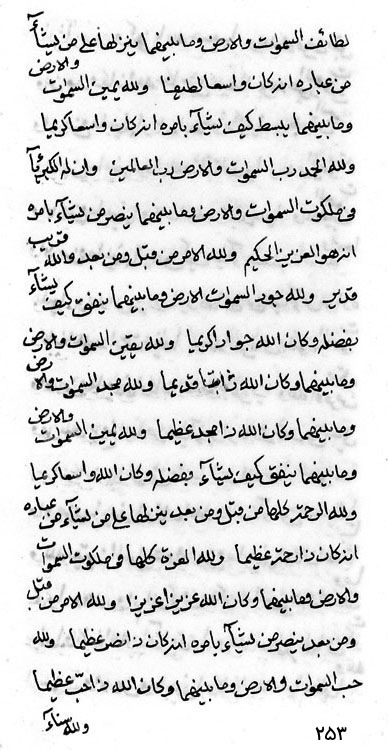 لطائف السموات والارض وما بينهما ينزلها على من يشآء
من عباده انه كان واسعا لطيفا ولله يمين السموات والارض
وما بينهما يبسط كيف يشآء بامره انه كان واسعا كريما
ولله الحمد رب السموات والارض رب العالمين وان له الكبريآء
فى ملكوت السموات والارض وما بينهما ينصر من يشآء بامره
انه هو العزيز الحكيم ولله الامر من قبل ومن بعد والله قريب
قدير ولله جود السموات الارض وما بينهما ينفق كيف يشآء
بفضله وكان الله جوادا كريما ولله السموات والارض
وما بينهما وكان الله ذا قديما ولله مجد السموات والارض
وما بينهما وكان الله ذا مجد عظيما ولله يمين السموات والارض
وما بينهما ينفق كيف يشآء بفضله وكان الله واسعا كريما
ولله الرحمة كلها من قبل ومن بعد ينزلها على من يشآء من عباده
انه كان ذا رحمة عظيما ولله العزة كلها فى ملكوت السموات
والارض وما بينهما وكان الله عزيزا عزيزا ولله الامر من قبل
ومن بعد ينصر من يشآء بامره انه كان ذا نصر عظيما ولله
حب السموات والارض وما بينهما وكان الله ذا حب عظيما
ولله سناء
٢٥٣